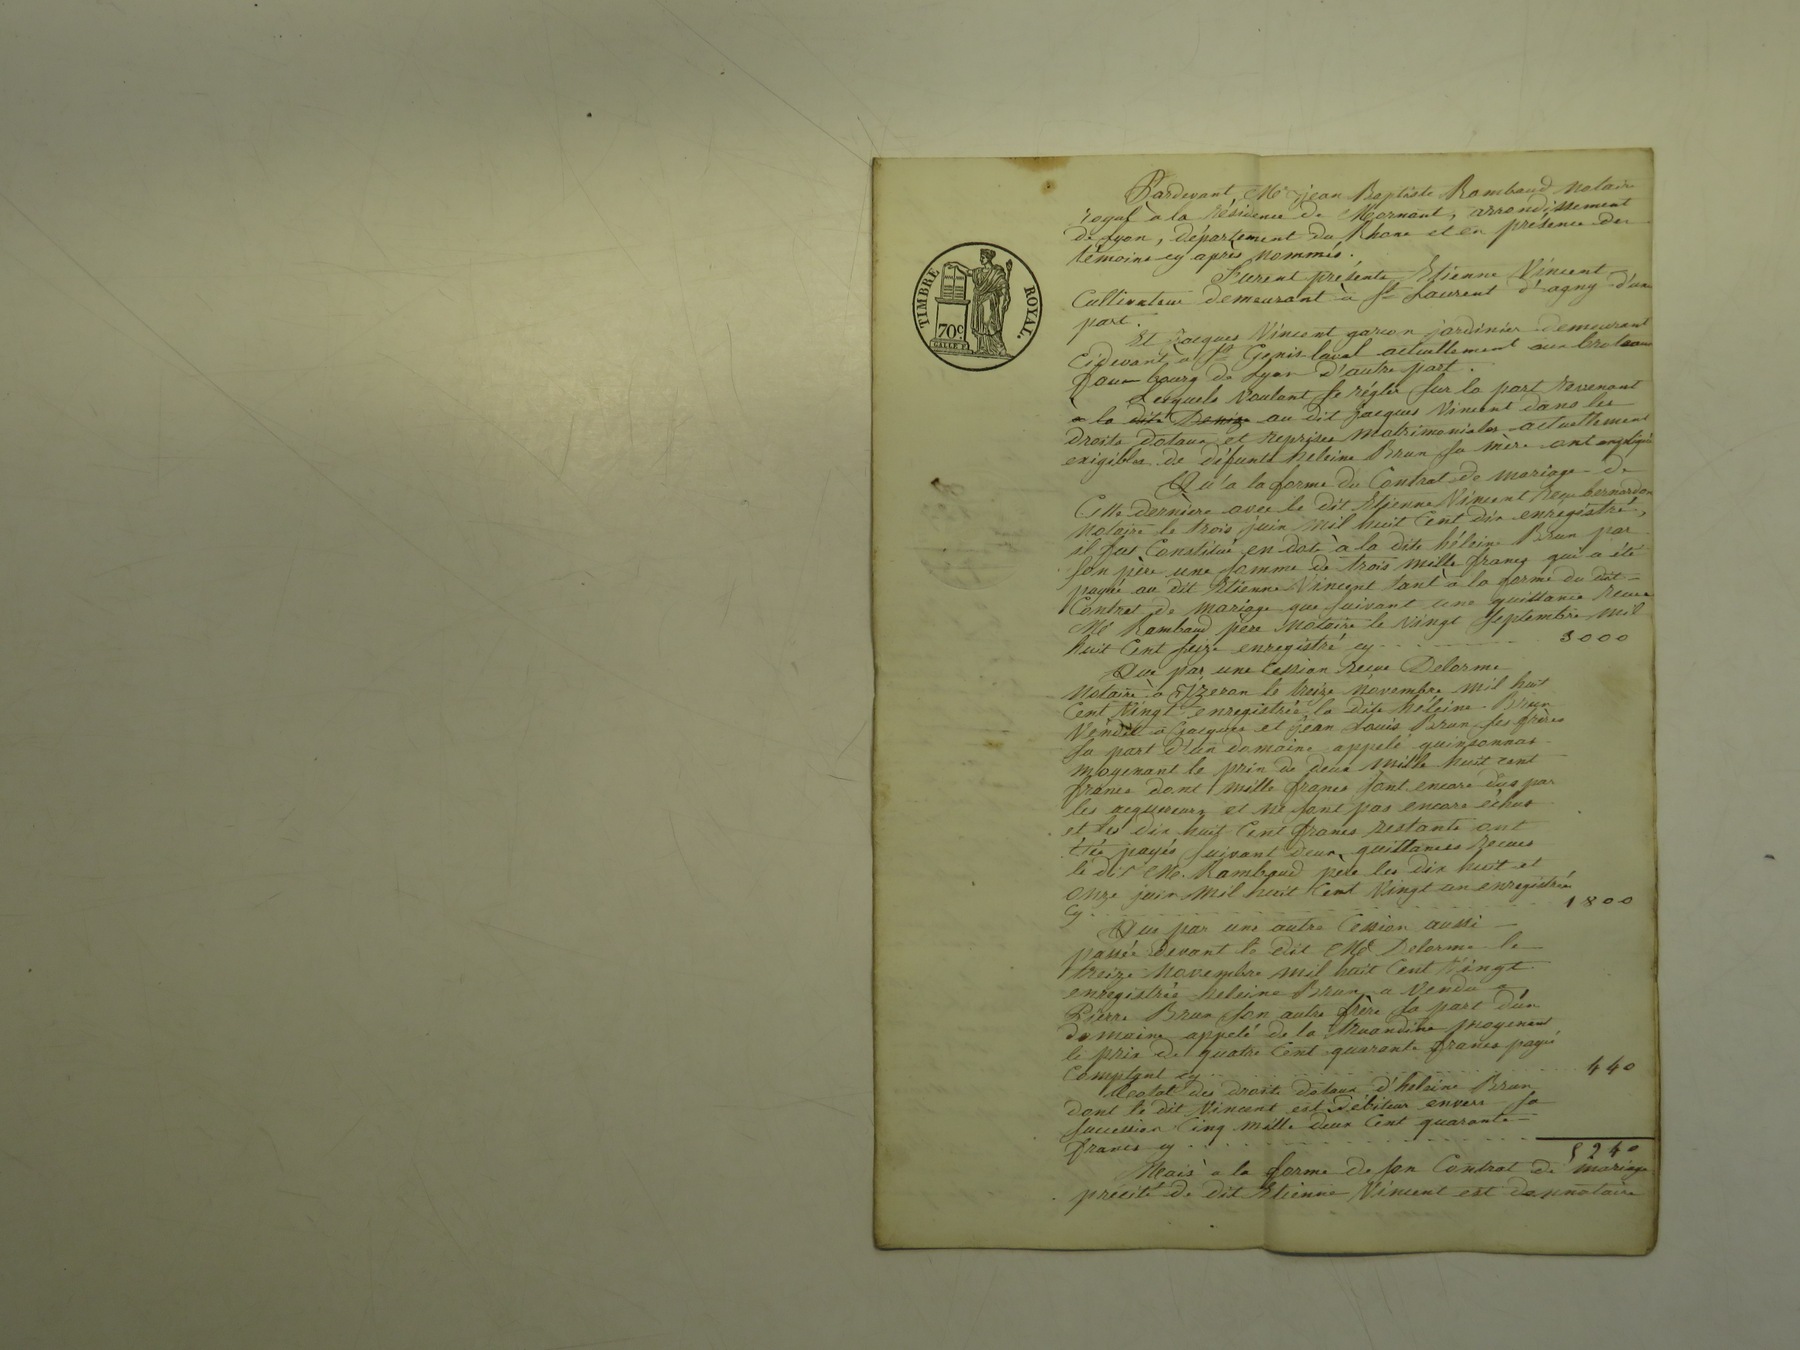 TIMBRE ROYAL.
70c
Pardevant Me jean Baptiste Rambaud notaire
royal à la résidence de Mornant, arrondissement
de Lyon, département du Rhone et en présence des
témoins cy après nommés.
Furent présents Etienne Vincent
Cultivateur demeurant à St Laurent d'agny d'une
part.
Et Jacques Vincent garçon jardinier demeurant
Cidevant à St Genis laval actuellement aux broteaux
faux bourg de Lyon d'autre part.
Lesquels voulant se régler sur la part revenant
a la dite Denize au dit jacques Vincent dans les
droits dotaux et reprises matrimoniales actuellement
exigibles de défunte heleine Brun sa mère ont expliqué
Qu'a la forme du Contrat de mariage de
Cette dernière avec le dit Etienne Vincent reçu bernardon
notaire le trois juin mil huit Cent dix enregistré,
il fut Constitué en dot à la dite héleine Brun par
son père une somme de trois mille francs qui a été
payée au dit Etienne Vincent tant à la forme du dit
Contrat de mariage que suivant une quittance recue
Me Rambaud père notaire le vingt septembre mil
huit Cent seize enregistré cy 3000
Que par une Cession recue Delorme
notaire à Yzeron le treize novembre mil huit
Cent vingt enregistrée, la dite héleine Brun
vendit a Jacques et Jean Louis Brun ses frères
sa part d'un domaine appelé quinsonnas
moyenant le prix de deux mille huit cent
francs dont mille francs sont encore dus par
les acquereurs et ne sont pas encore échus
et les dix huit Cent francs restants ont
été payés suivant deux quittances recues
le dit Me. Rambaud père les dix huit et
onze juin mil huit Cent vingt un enregistrées
Cy 1800
Que par une autre Cession aussi
passée devant le dit Me Delorme le
treize novembre mil huit Cent vingt
enregistrée heleine Brun a vendu a
Pierre Brun son autre frère sa part d'un
domaine appelé de la moyenant
le prix de quatre Cent quarante francs payé
Comptant cy 440
des droits dotaux d'heleine Brun
dont le dit Vincent est débiteur envers sa
succession Cinq mille deux Cent quarante
francs cy 5240
Mais à la forme de son Contrat de mariage
précité de dit Etienne Vincent est donnataire